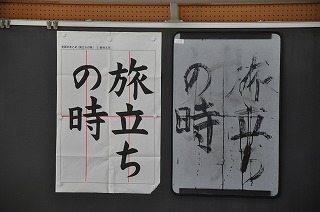 旅立ち
の時
旅立ち
の時